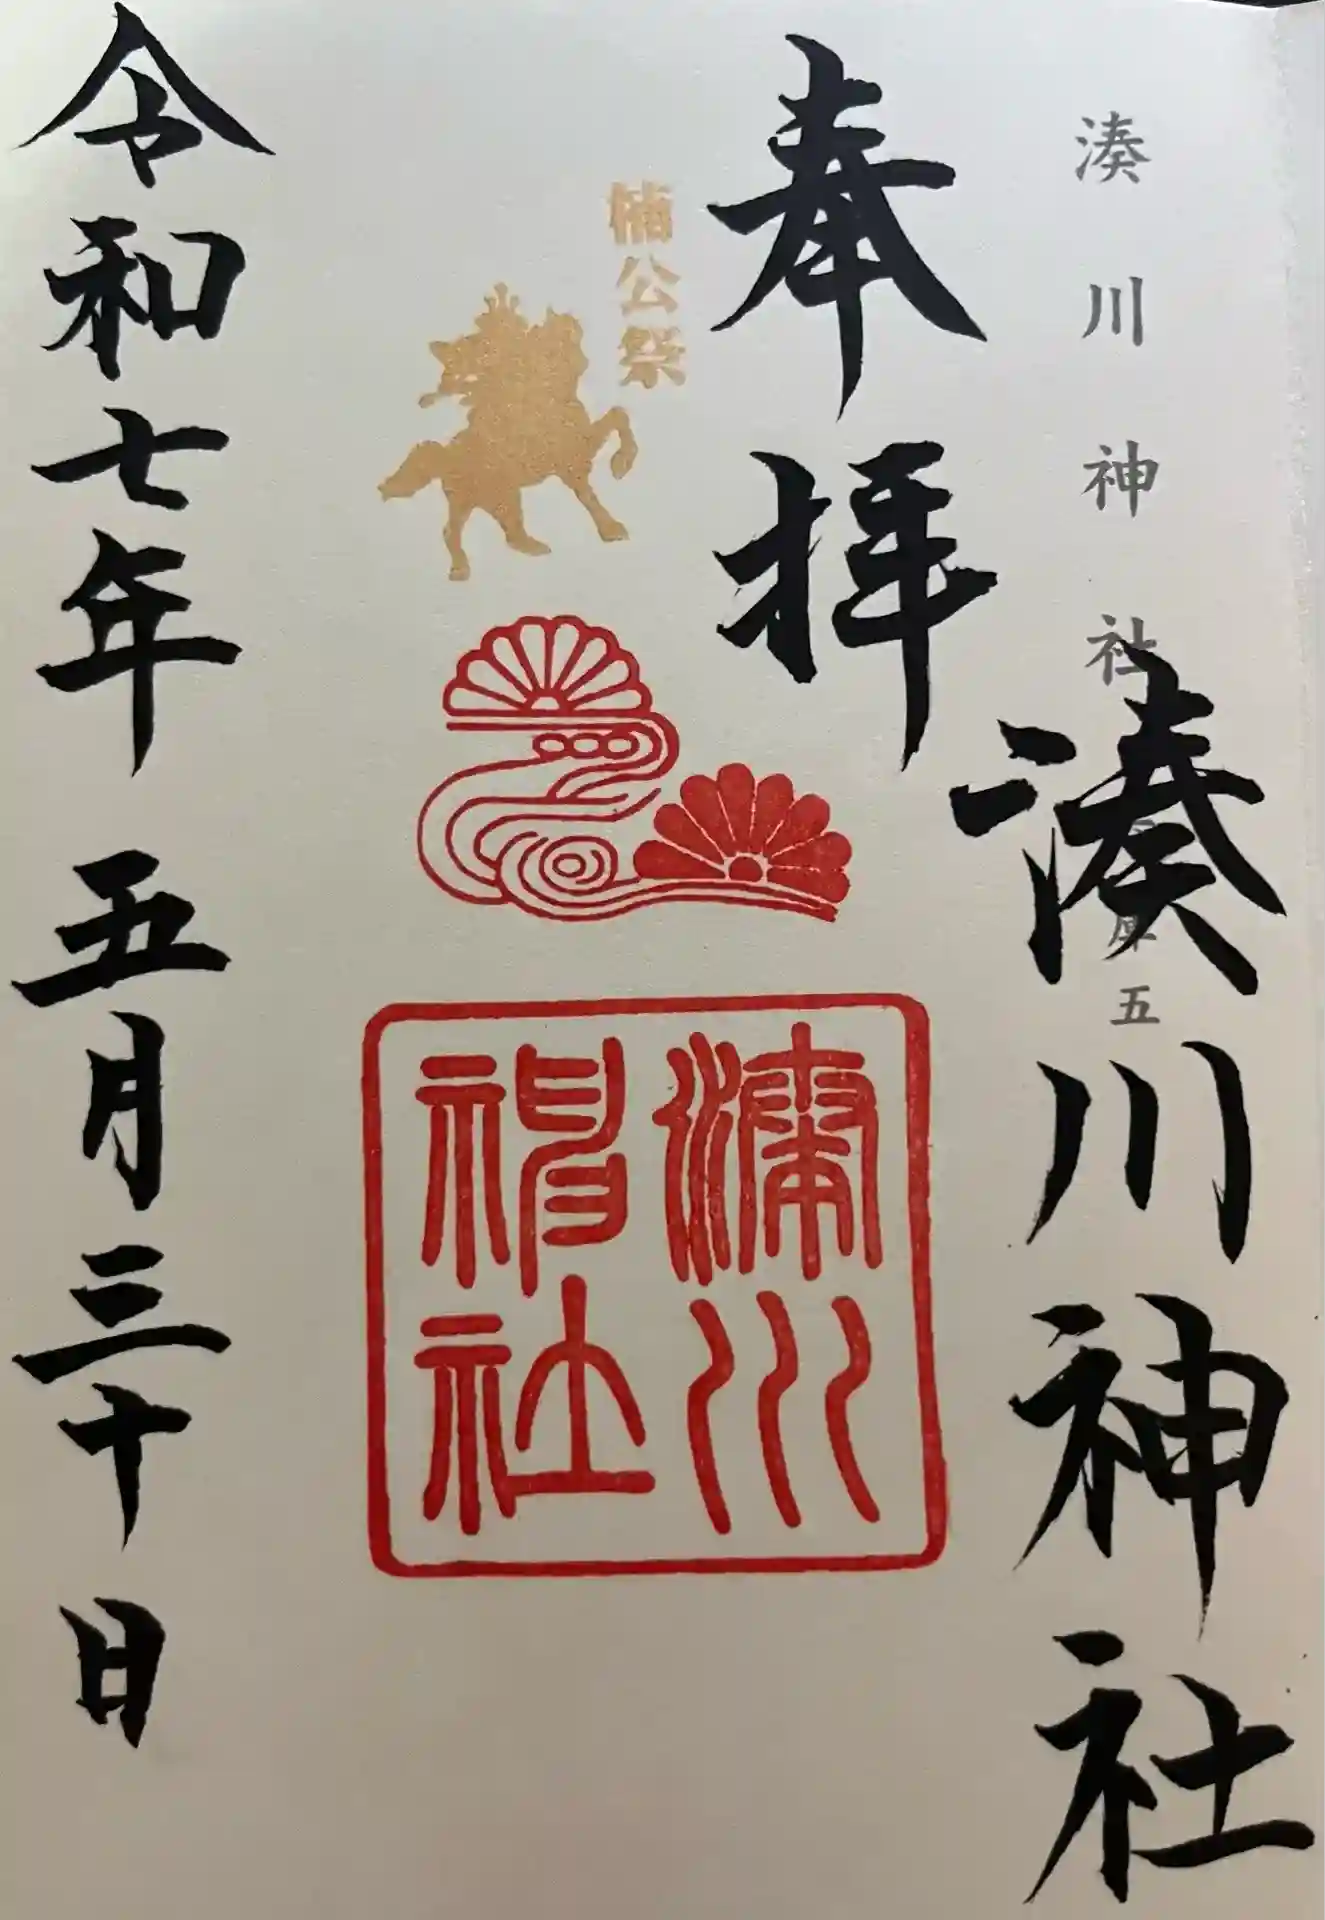 湊川神社
五
奉拝
湊川神社
楠公祭
湊川
神社
令和七年 五月三十日